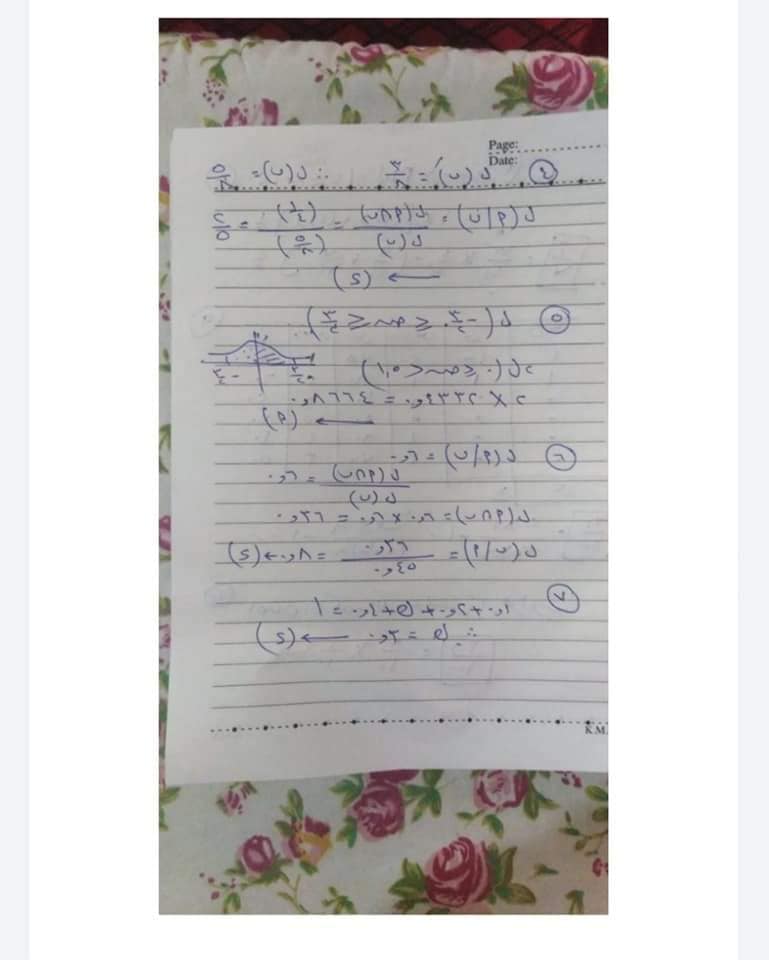 Page:
Date:
٤ ل(بَ) = ٣/٨ ∴ ل(ب) = ٥/٨
ل(أ/ب) = ل(أ∩ب)/ل(ب) = (١/٤)/(٥/٨) = ٢/٥
← (د)
٥ ل(-٣/٢ ≤ ص ≤ ٣/٢)
٢ل(٠ ≤ ص < ١,٥)
٢ × ٠,٤٣٣٢ = ٠,٨٦٦٤
← (أ)
٦ ل(أ/ب) = ٠,٦
ل(أ∩ب)/ل(ب) = ٠,٦
ل(أ∩ب) = ٠,٦ × ٠,٦ = ٠,٣٦
ل(ب/أ) = ٠,٣٦/٠,٤٥ = ٠,٨ ← (د)
٧ ٠,١ + ٠,٢ + ك + ٠,٤ = ١
∴ ك = ٠,٣ ← (د)
K.M.